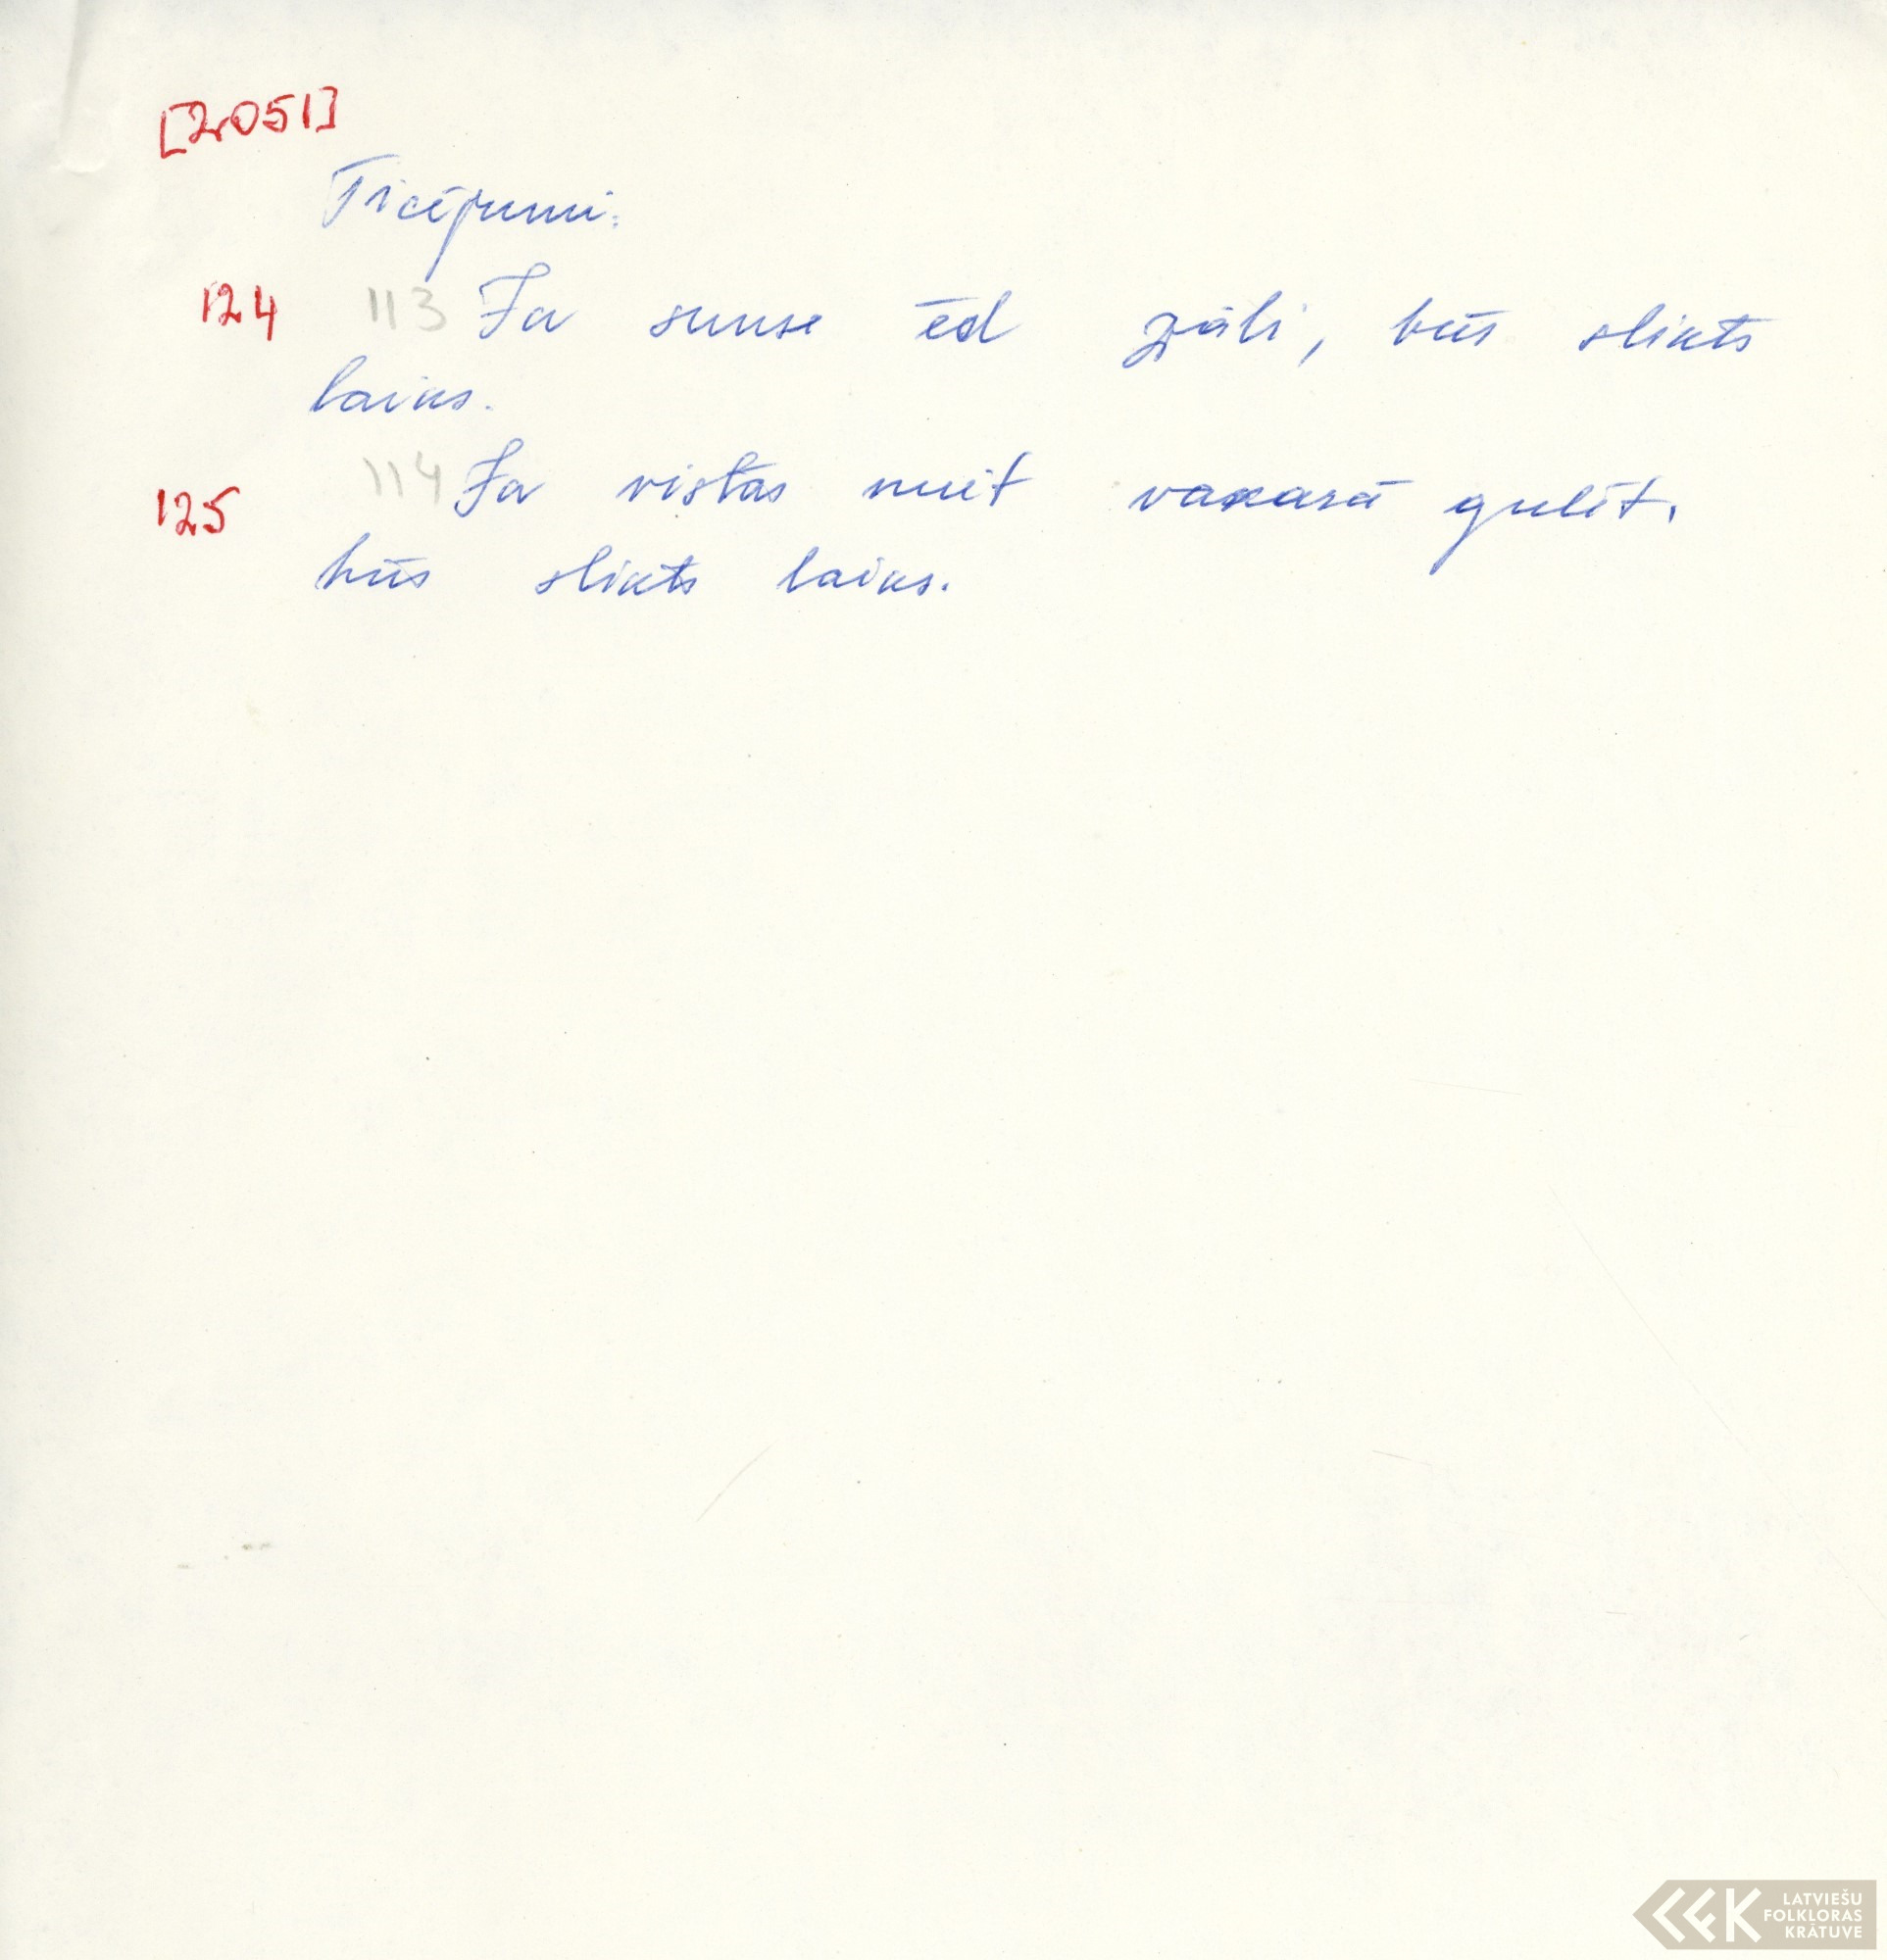 [2051]
Ticējumi:
124 113 Ja sunse ēd zāli, būs slikts
laiks.
125 114 Ja vistas nuit vakarā gulēt,
būs slikts laiks.
LATVIEŠU
FOLKLORAS
KRĀTUVE